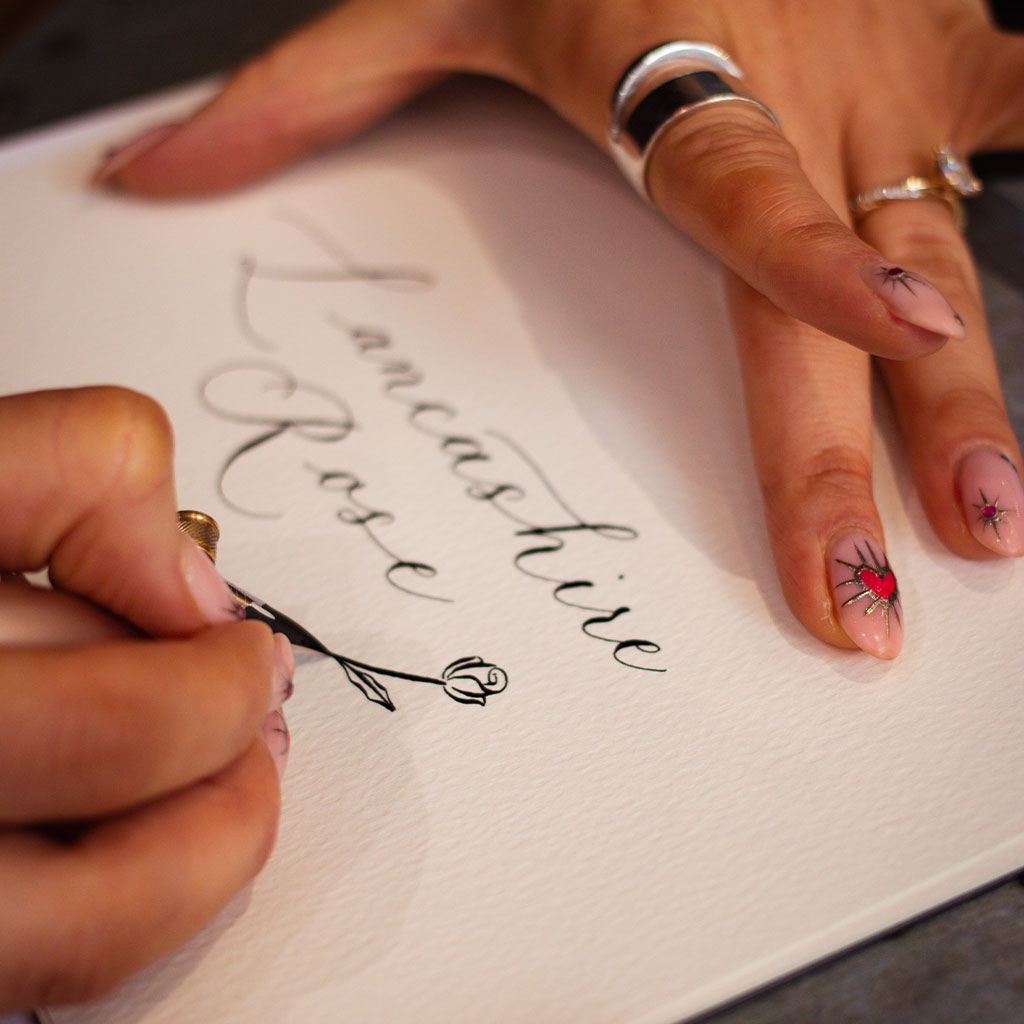 Lancashire
Rose